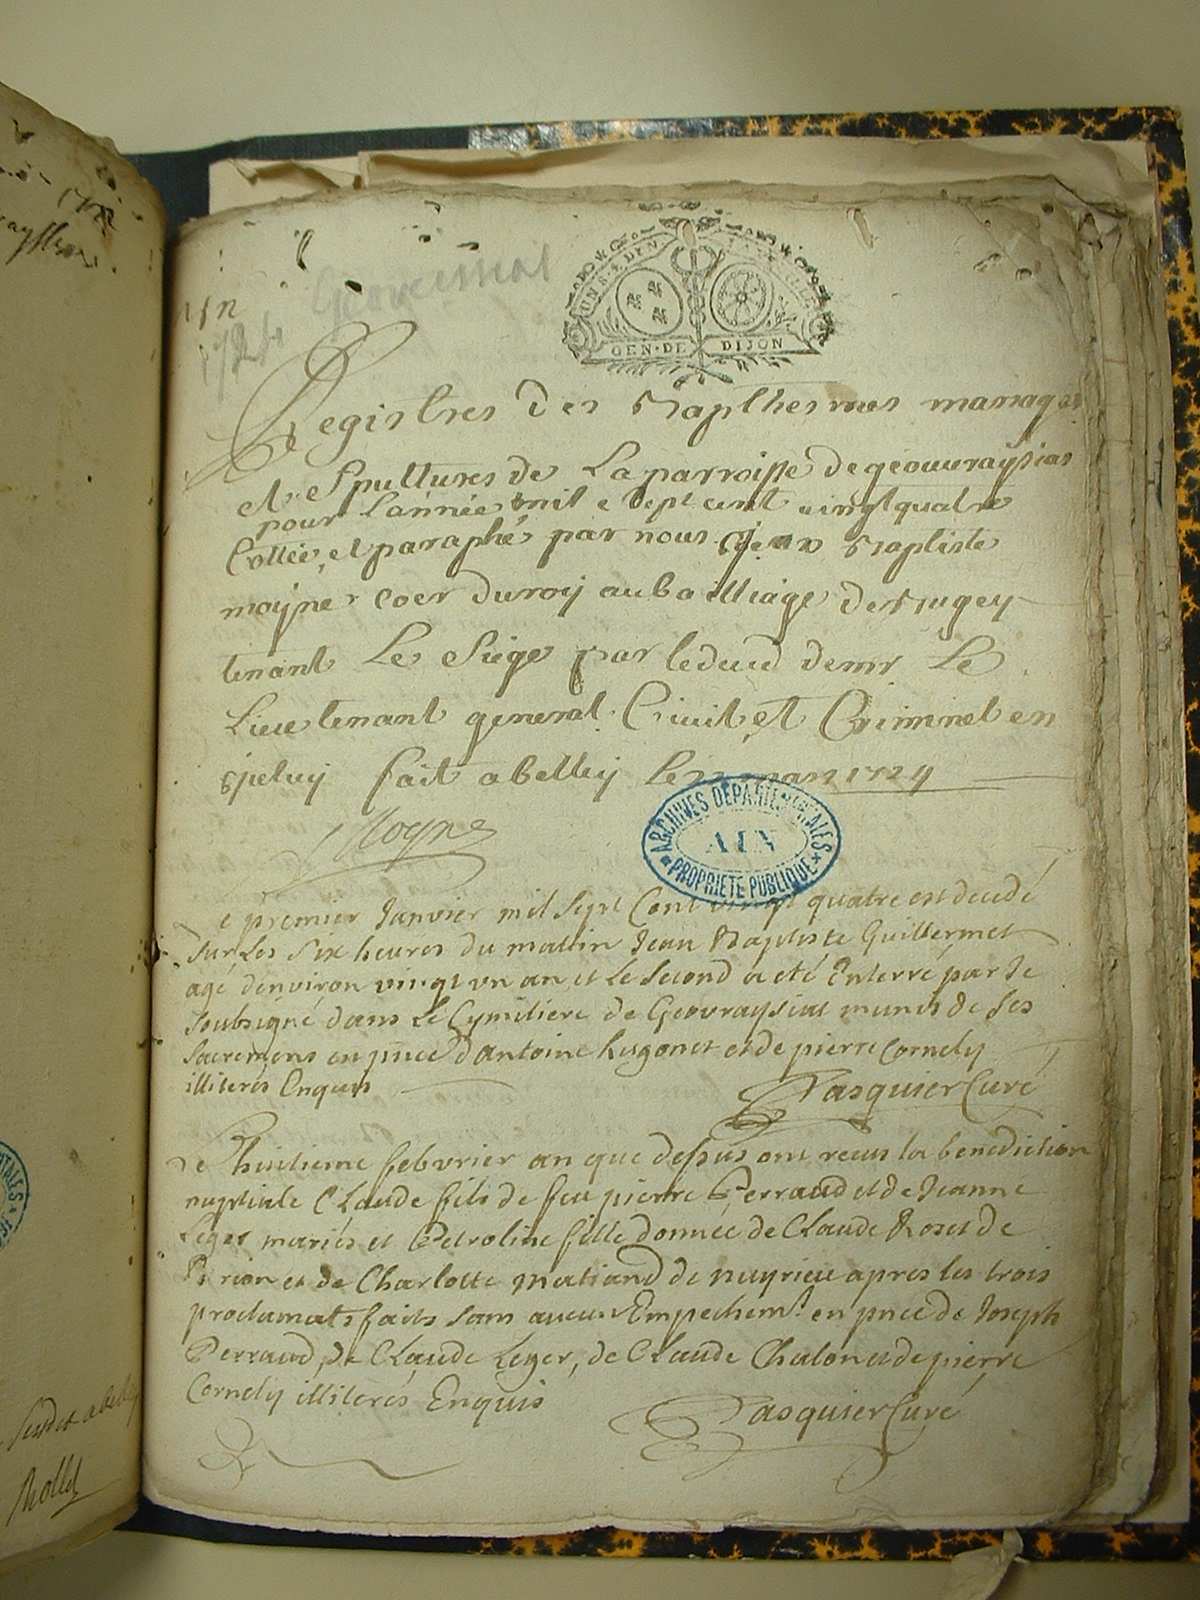 1724 Geovressiat
GEN·DE DIJON
Registres des Bapthesmes mariages
et Sepultures de La parroisse de geouuraysias
pour Lannée mil e Sept cent uingt quatre
Cottée, et paraphé par nous Jean Baptiste
moyne coer du roy au bailliage de Bugey
tenant Le Siege par le deced de mr Le
Lieutenant general Ciuil et Criminel en
fait a belley Le mars 1724
Moyne
ARCHIVES DÉPARTEMENTALES
AIN
PROPRIÉTÉ PUBLIQUE
Le premier Janvier mil Sept Cent vingt quatre est decedé
Sur Les Six heures du mattin Jean Baptiste Guillermet
agé denviron vingt vn an et Le Second a eté Enterré par Je
Soubsigné dans Le Cymitiere de Geovraysiat munis de Ses
Sacremens en pnce d'antoine hugonet et de pierre Cornely
illiterés Enquis
Pasquier Curé
Le huitieme febvrier an que dessus ont receu la benediction
nuptiale CLaude fils de feu pierre Perraud et de Jeanne
Leger mariés et Petroline fille donnée de CLaude Roset de
Brion et de Charlotte de nuyrieu apres les trois
proclamats faits Sans aucun Empechemt. en pnce de Joseph
Perraud, de CLaude Leger, de CLaude Chalon et de pierre
Cornely illiterés Enquis
Pasquier Curé